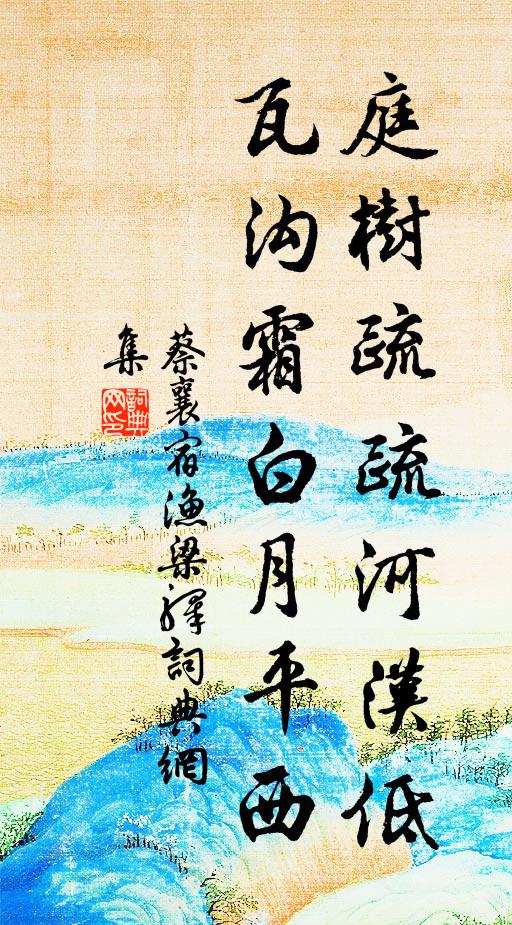 庭樹疏疏河漢低
瓦沟霜白月平西
蔡襄宿漁梁驛詞典網
集
詞典
网印